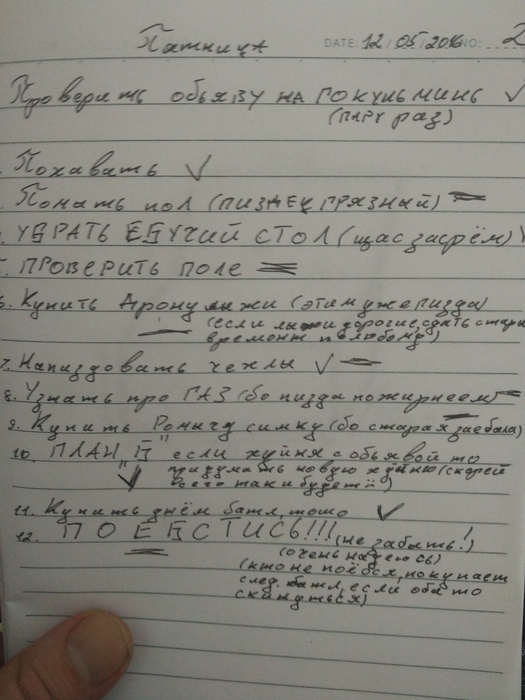 Пятница DATE: 12/05/2016 NO: 2
Проверить обьяву на
(пару раз)
Похавать
Помать пол (пиздец грязный)
УБРАТЬ ЕБУЧИЙ СТОЛ (щас засрём)
ПРОВЕРИТЬ ПОЛЕ
6. Купить Арону лыжи (этим уже пизда)
(если лыжи дорогие, сдать стары
времонт полюбому)
7. Напиздовать чехлы
8. Узнать про ГАЗ (бо пизда пожирнеем)
9. Купить Ромичу симку (бо старая заебала)
10. ПЛАН "Б" если хуйня с обьявой то
придумать новую хуйню (скорей
всего так и будет ..)
11. Купить днём батл, тошо
12. ПОЕБСТИСЬ!!! (не забыть!)
(очень надеюсь)
(кто не поёбся, покупает
след. батл, если оба то
скинуться)